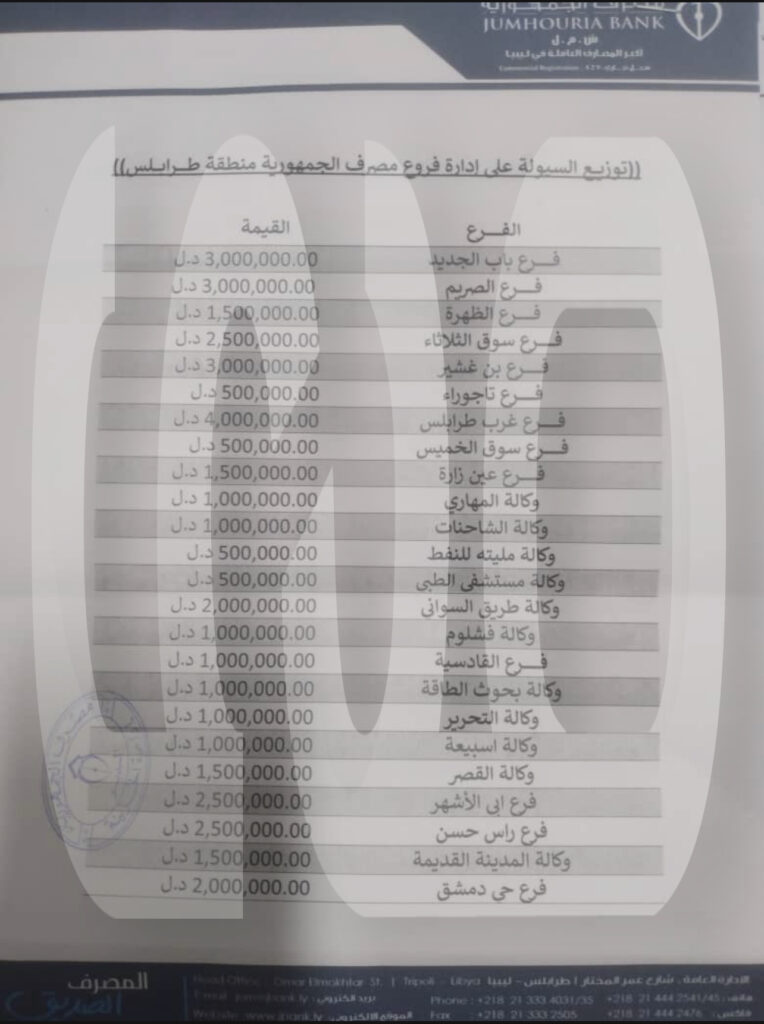 مصرف الجمهورية
JUMHOURIA BANK
ش.م.ل
اكبر المصارف العاملة في ليبيا
Commercial Registration
((توزيع السيولة على إدارة فروع مصرف الجمهورية منطقة طرابلس))
الفـــرع القيمة
فـــرع باب الجديد 3,000,000.00 د.ل
فـــرع الصريم 3,000,000.00 د.ل
فـــرع الظهرة 1,500,000.00 د.ل
فـــرع سوق الثلاثاء 2,500,000.00 د.ل
فـــرع بن غشير 3,000,000.00 د.ل
فـــرع تاجوراء 500,000.00 د.ل
فـــرع غرب طرابلس 4,000,000.00 د.ل
فـــرع سوق الخميس 500,000.00 د.ل
فـــرع عين زارة 1,500,000.00 د.ل
وكالة المهاري 1,000,000.00 د.ل
وكالة الشاحنات 1,000,000.00 د.ل
وكالة مليته للنفط 500,000.00 د.ل
وكالة مستشفى الطبي 500,000.00 د.ل
وكالة طريق السواني 2,000,000.00 د.ل
وكالة فشلوم 1,000,000.00 د.ل
فـــرع القادسية 1,000,000.00 د.ل
وكالة بحوث الطاقة 1,000,000.00 د.ل
وكالة التحرير 1,000,000.00 د.ل
وكالة اسبيعة 1,000,000.00 د.ل
وكالة القصر 1,500,000.00 د.ل
فرع ابي الأشهر 2,500,000.00 د.ل
فرع راس حسن 2,500,000.00 د.ل
وكالة المدينة القديمة 1,500,000.00 د.ل
فرع حي دمشق 2,000,000.00 د.ل
المصرف الصديق
الادارة العامة . شارع عمر المختار | طرابلس - ليبيا Head Office : Omar Elmokhtar St. | Tripoli - Libya
هاتف: +218 21 444 2541/45 Phone : +218 21 333 4031/35 بريد الكتروني:
فاكس: +218 21 444 2476 Fax : +218 21 333 2505 الموقع الالكتروني: Website: www.jbank.ly